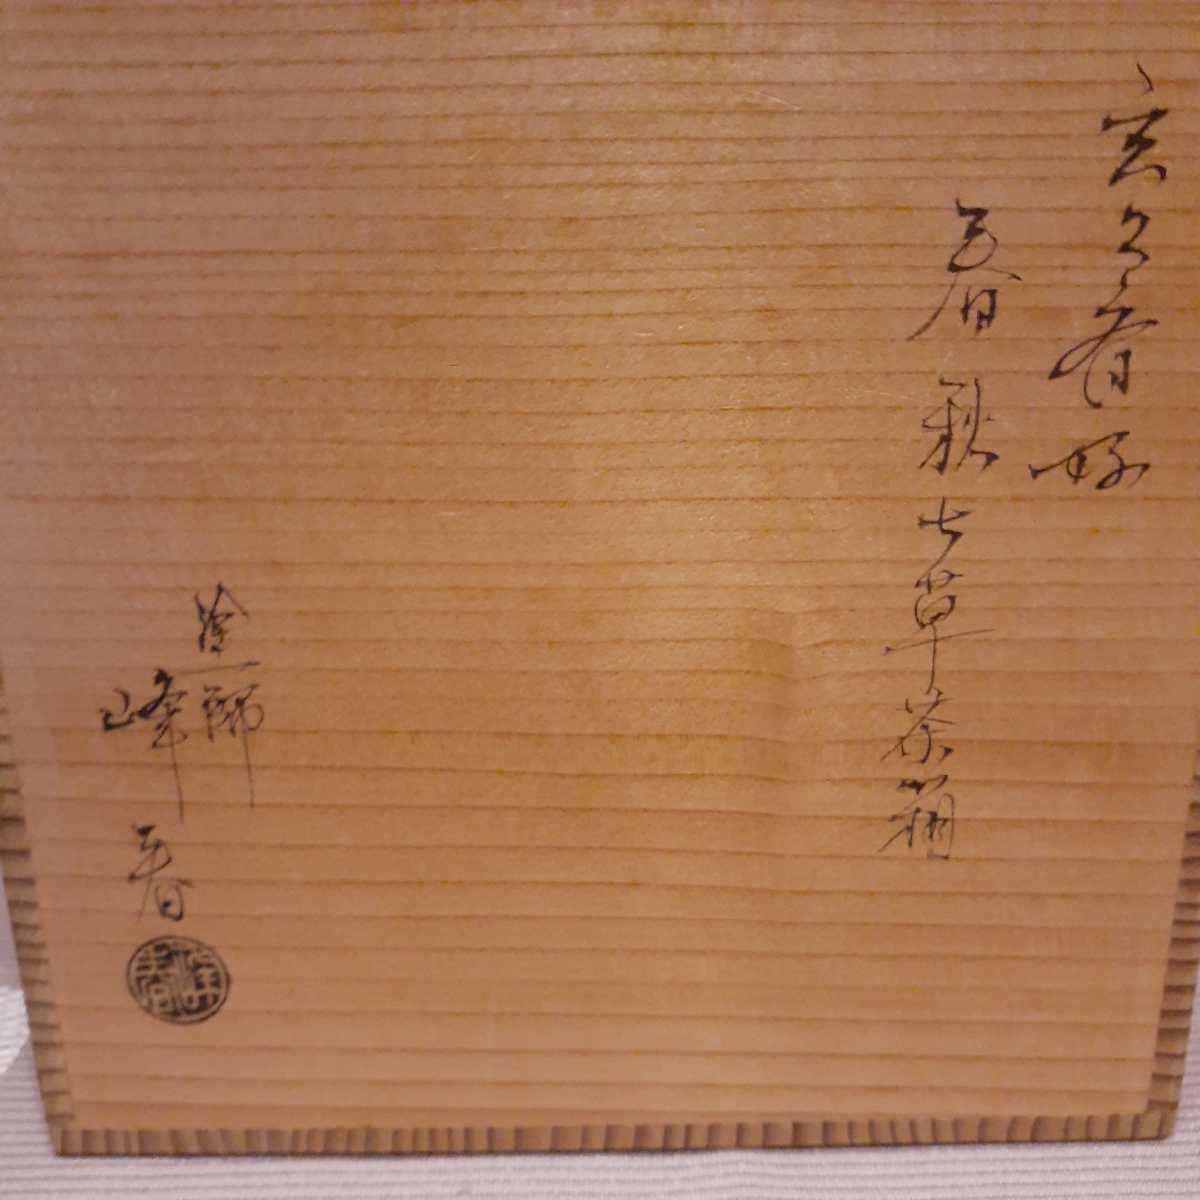 玄々斎好
春秋七草茶箱
塗師
峰春